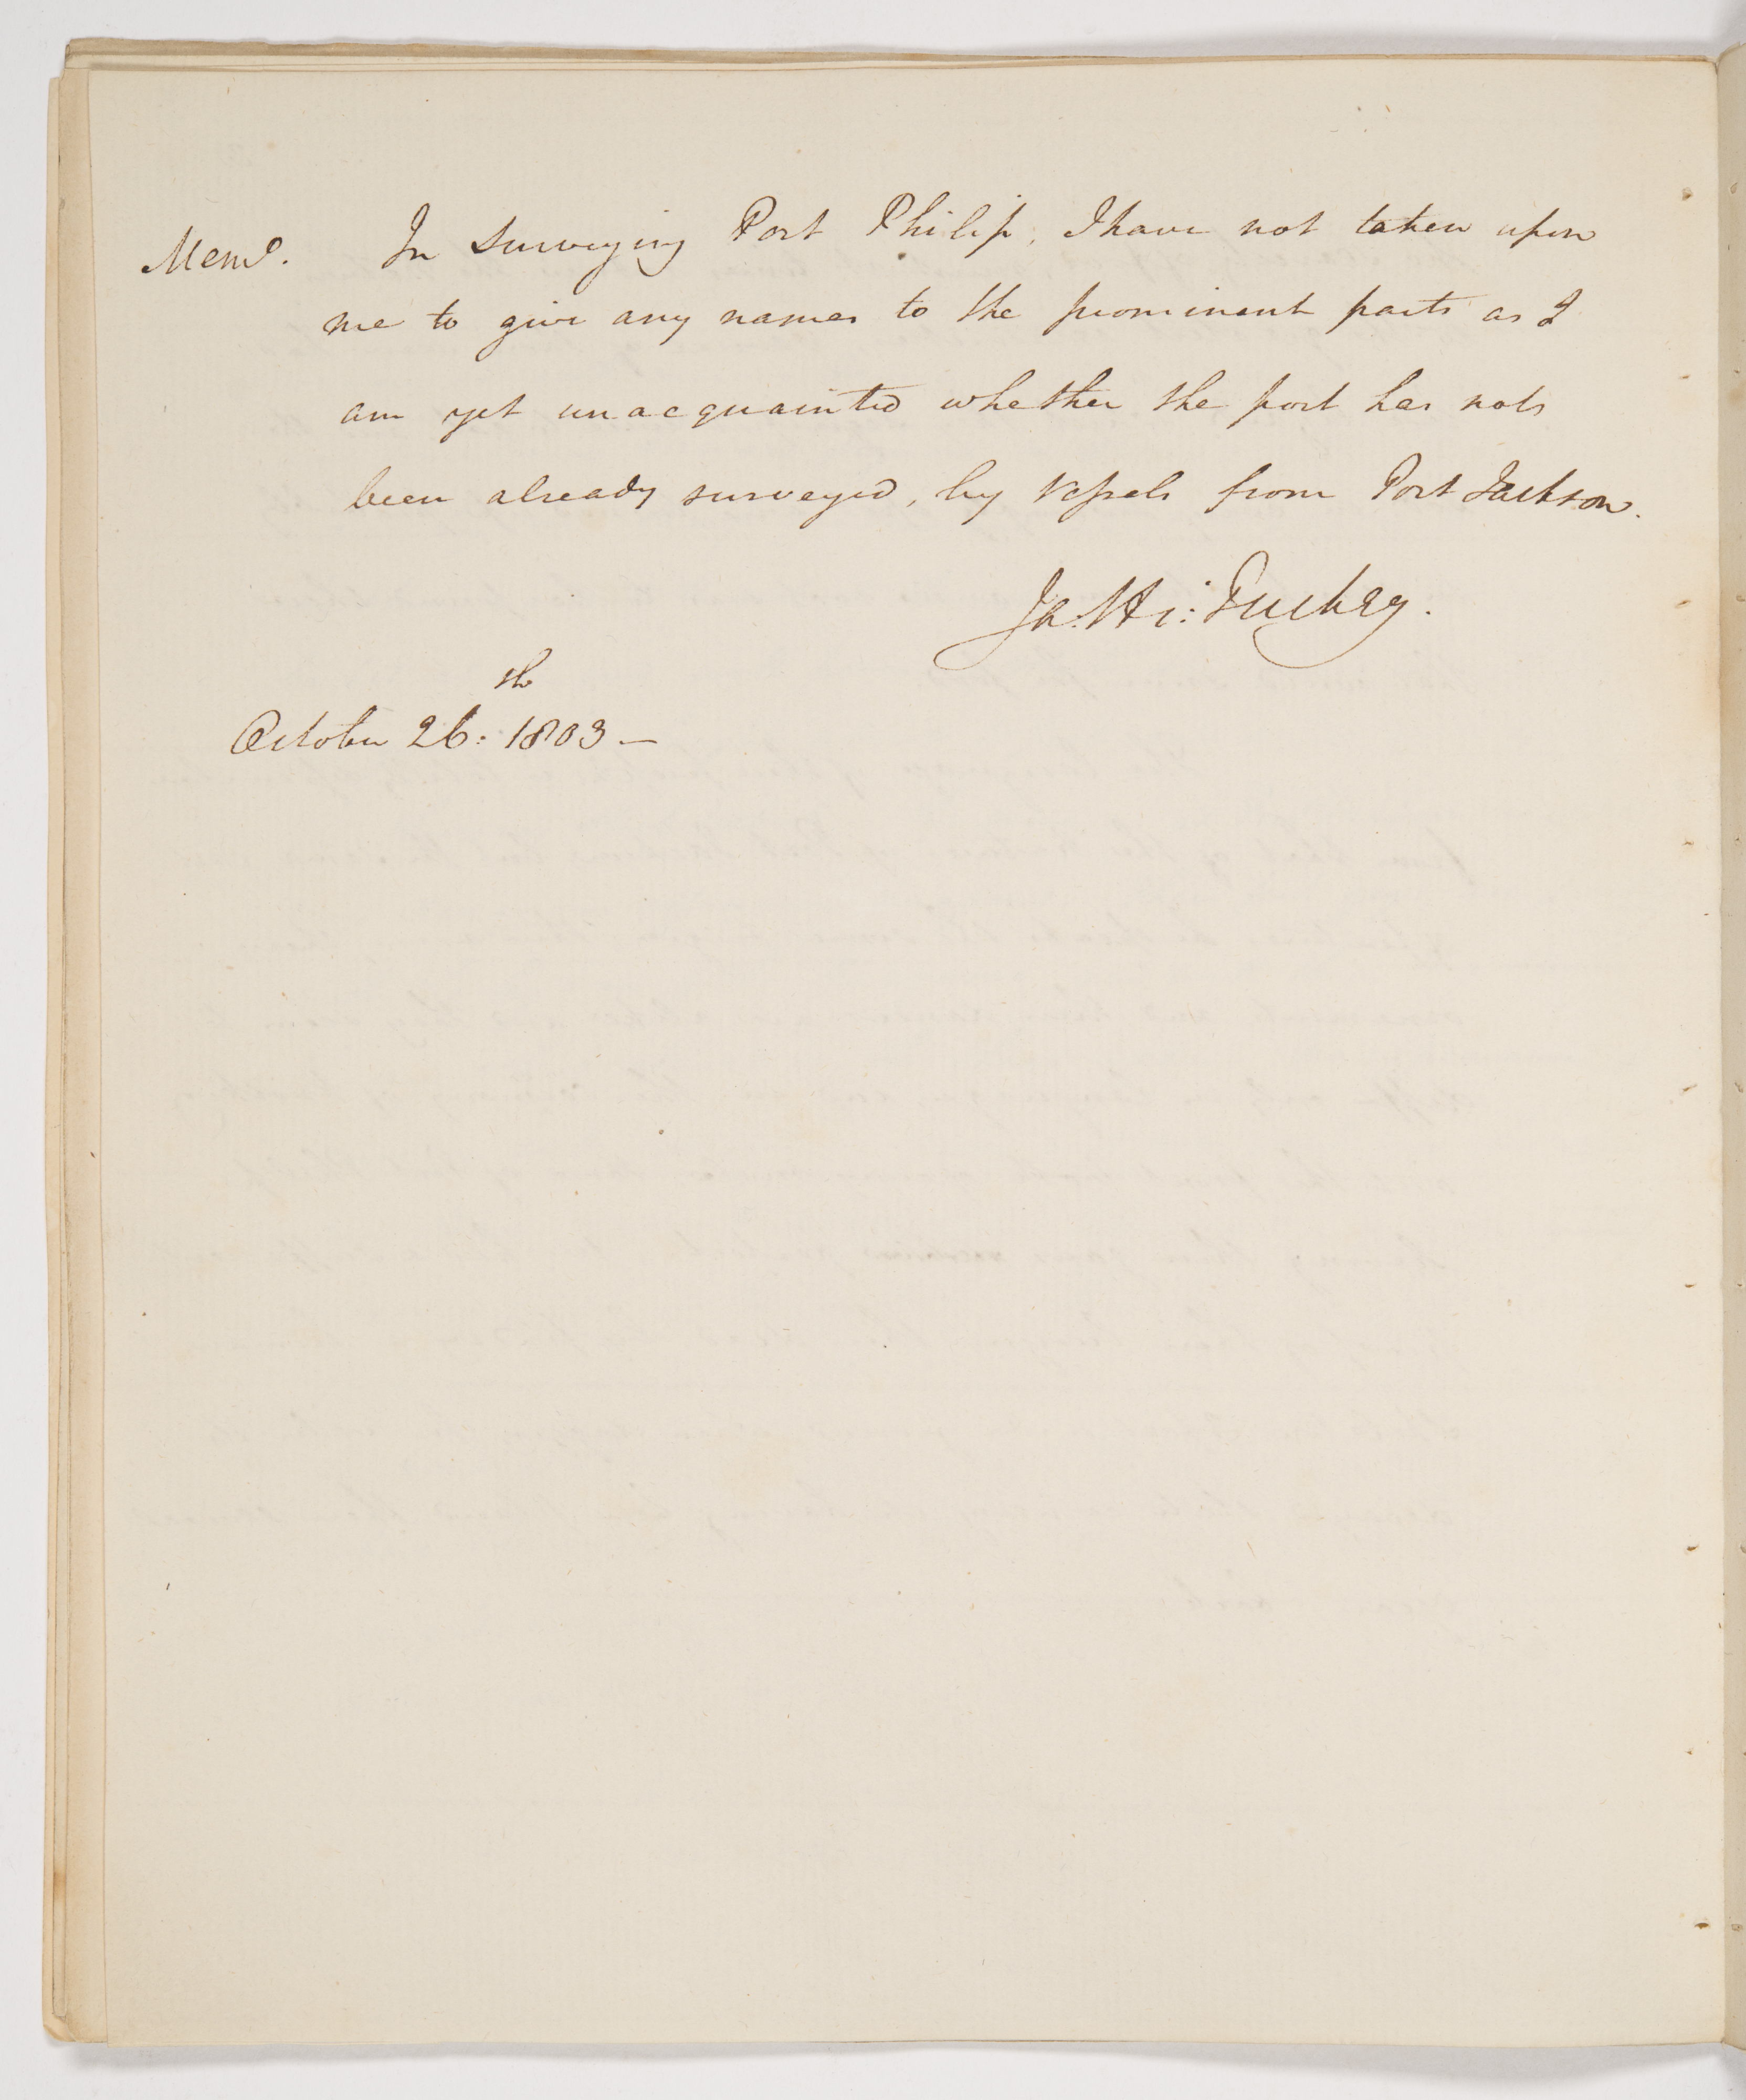 Memo. In Surveying Port Philip, I have not taken upon
me to give any names to the prominent parts as I
am yet unacquainted whether the port has not
been already surveyed, by Vessels from Port Jackson.
Ja. Hi: Tuckey.
October 26th: 1803 —